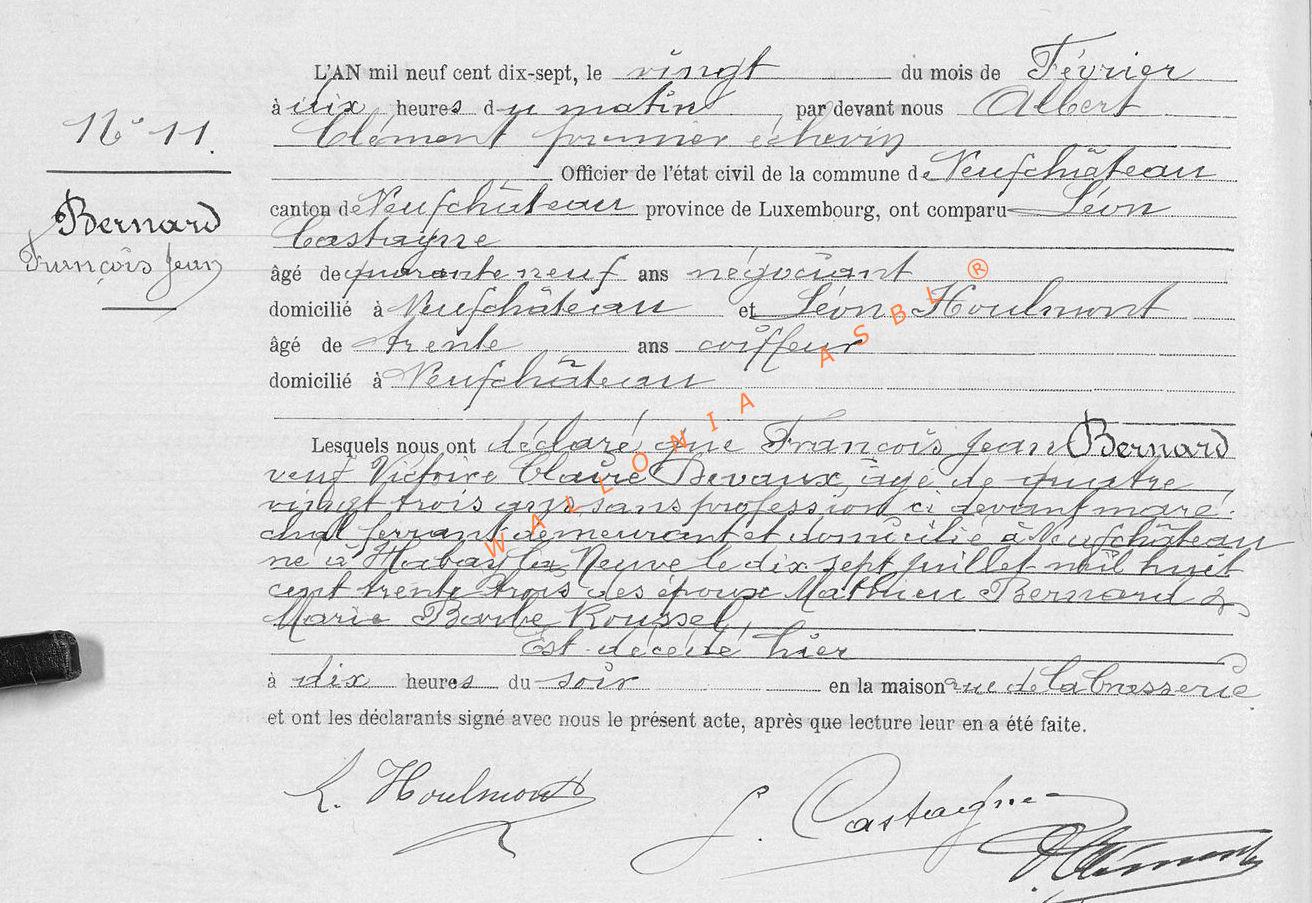 L'AN mil neuf cent dix-sept, le vingt du mois de Février
à dix heures du matin par devant nous Albert
Clément premier échevin
Officier de l'état civil de la commune de Neufchâteau
canton de Neufchâteau province de Luxembourg, ont comparu Léon
Castagne
âgé de quarante neuf ans négociant
domicilié à Neufchâteau et Léon Houlmont
âgé de trente ans coiffeur
domicilié à Neufchâteau
N° 11.
Bernard
François Jean
Lesquels nous ont déclaré que François Jean Bernard
veuf Victoire Claire Devaux âgé de quatre
vingt trois ans sans profession ci devant maré
chal ferrant demeurant et domicilié à Neufchâteau
né à Habay la Neuve le dix sept juillet mil huit
cent trente trois des époux Mathieu Bernard &
Marie Barbe Roussel,
Est décédé hier
à dix heures du soir en la maison rue de la brasserie
et ont les déclarants signé avec nous le présent acte, après que lecture leur en a été faite.
L. Houlmont
L. Castagne
AClément
WALLONIA ASBL ®